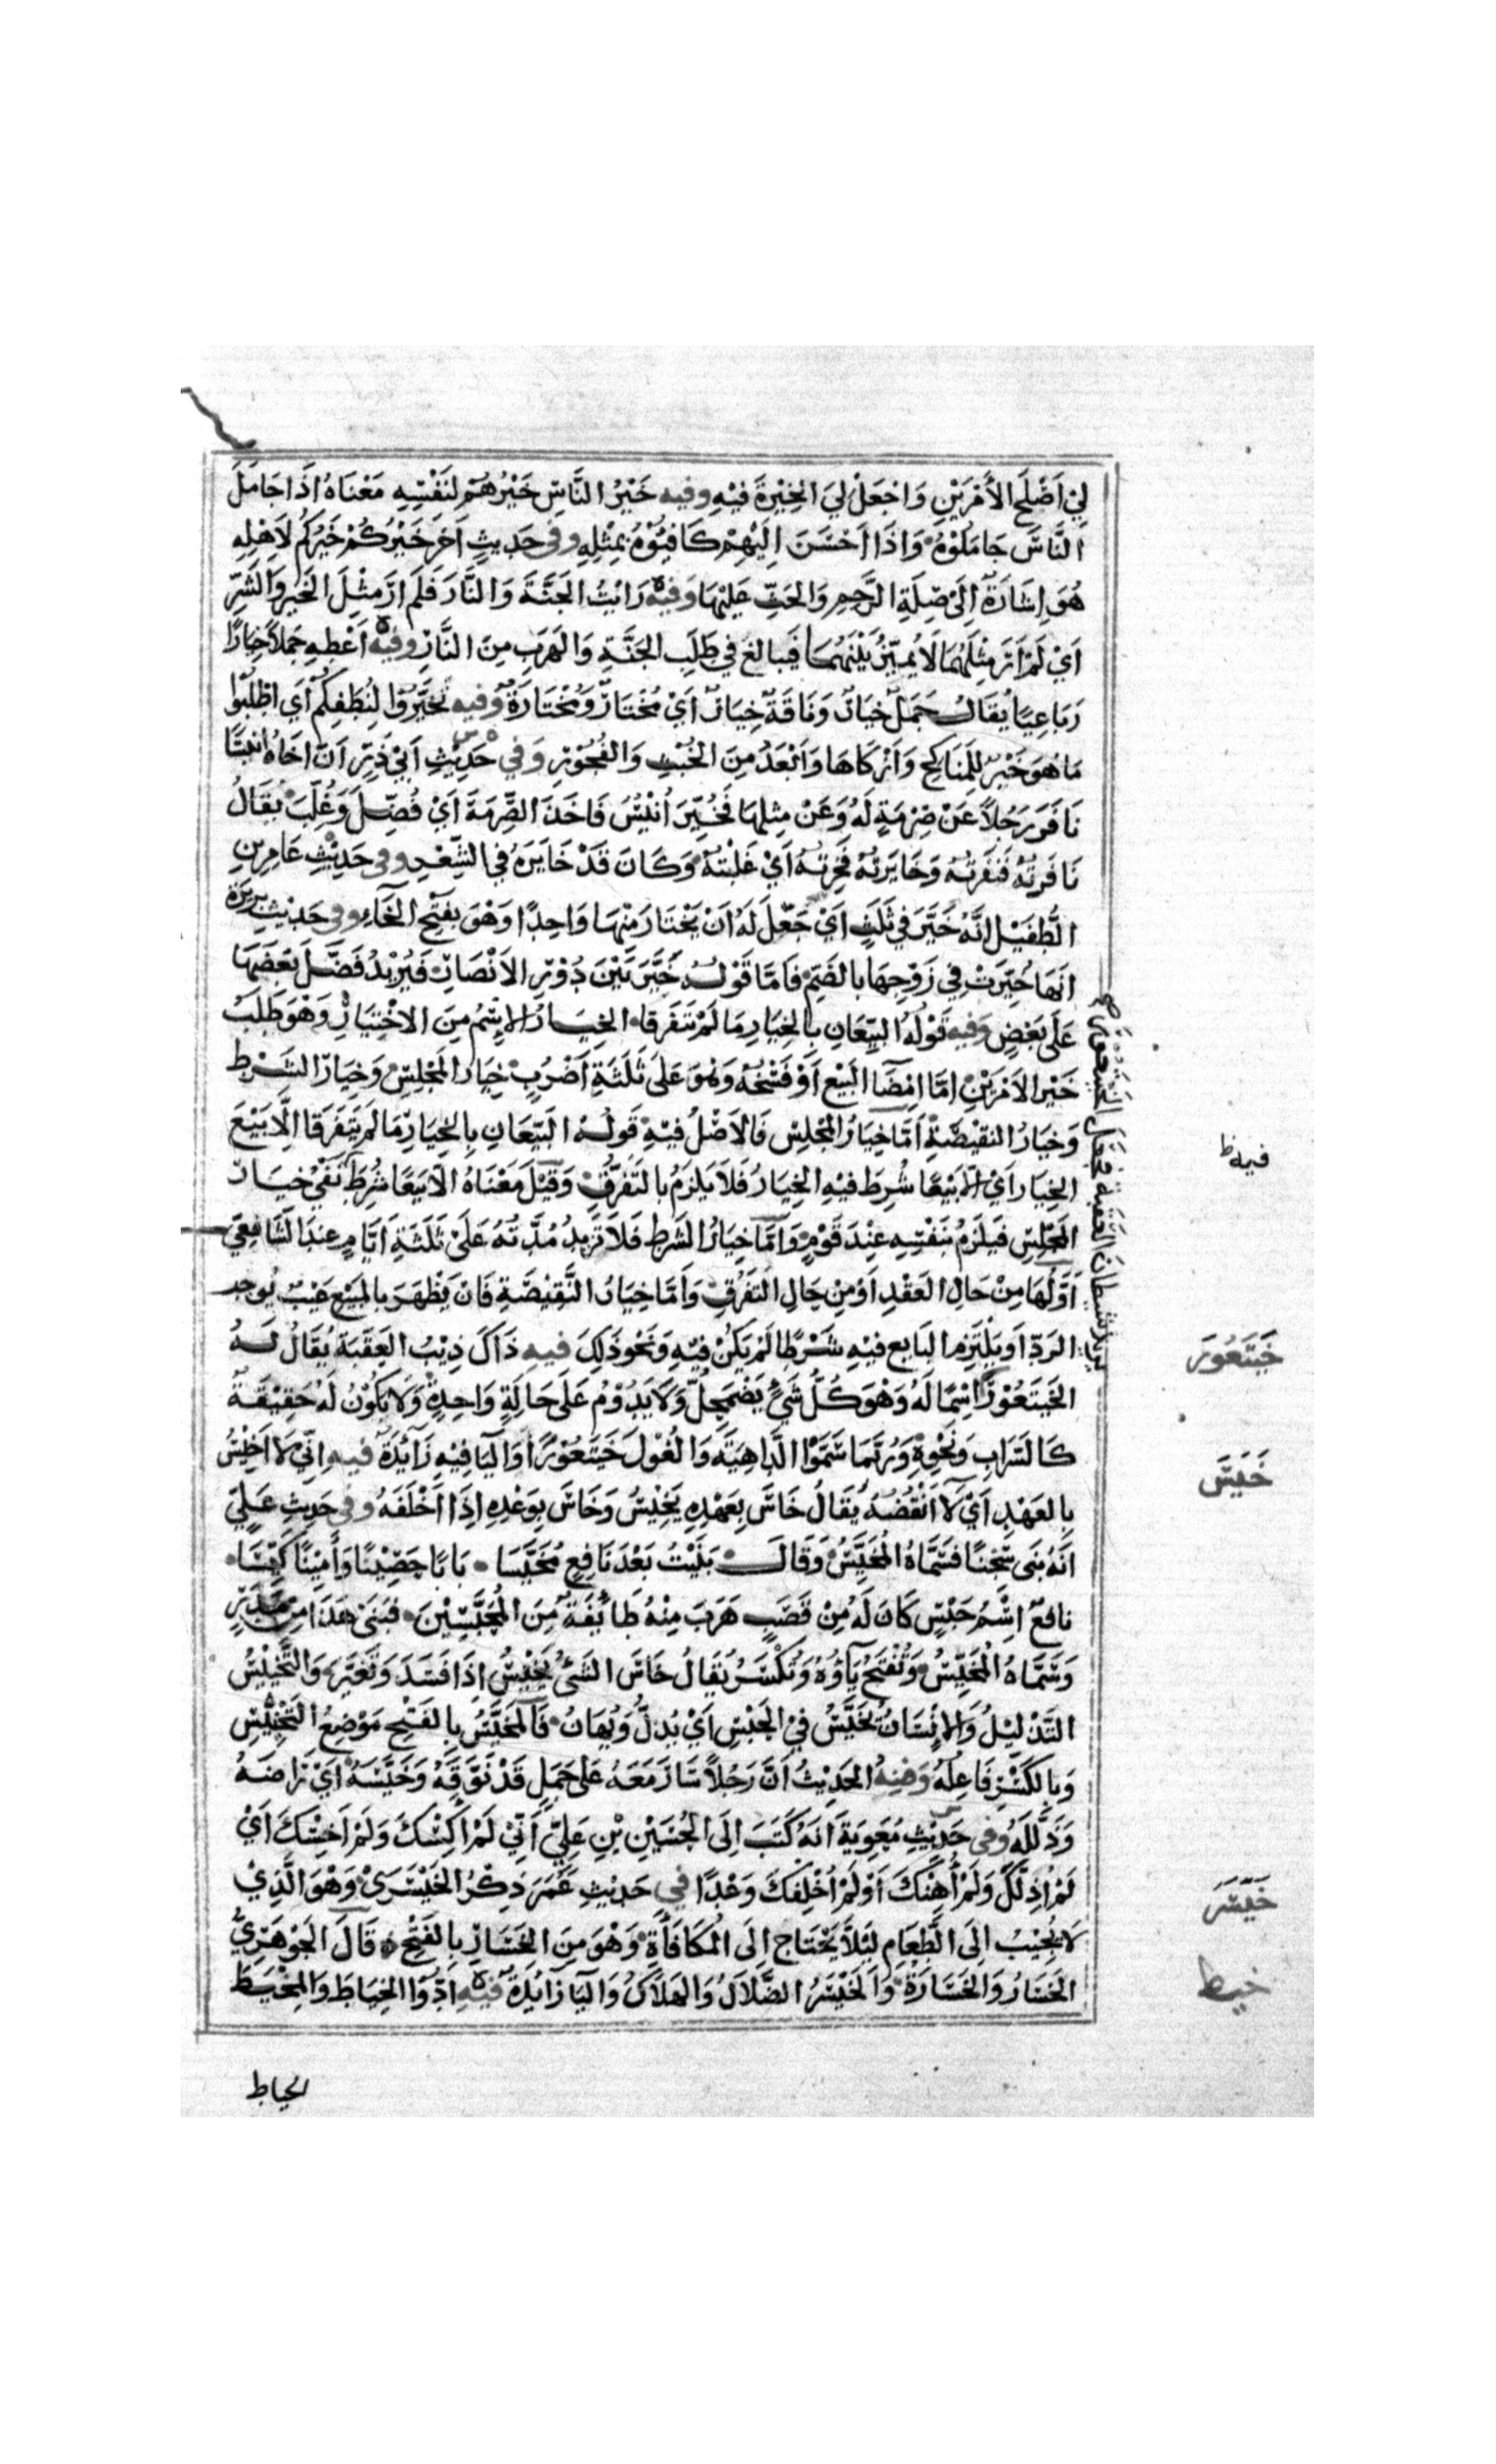 لِيْ اَصْلَحَ الأَمْرَيْنِ وَاجْعَلْ لِيَ الخِيْرَةَ فِيْهِ وفيه خَيْرُ النَّاسِ خَيْرُهُمْ لِنَفْسِهِ مَعْنَاهُ اِذَا جَامَلَ
النَّاسَ جَامَلُوْهُ وَاِذَا اَحْسَنَ اِلَيْهِمْ كَافَئُوْهُ بِمِثْلِهِ وفى حَدِيثٍ اَخَرَ خَيْرُكُمْ خَيْرُكُمْ لِاَهْلِهِ
هُوَ اِشَارَةٌ اِلَى صِلَةِ الرَّحِمِ وَالحَثِّ عَلَيْهَا وَفيه رَايْتُ الجَنَّةَ وَالنَّارَ فَلَمْ اَرَ مِثْلَ الخَيْرِ وَالشَرِّ
اَيْ لَمْ اَرَ مِثْلَهُمَا لَا يُمَيَّزُ بَيْنَهُمَا فَيُبَالَغ فِي طَلَبِ الجَنَّةِ وَالهَرَبِ مِنَ النَّارِ وفيه اَعْطِهِ جَمَلاً خِيَارًا
رَبَاعِيًا يُقَالُ جَمَلٌ خِيَارٌ وَنَاقَةٌ خِيَارٌ اَيْ مُخْتَارٌ وَمُخْتَارَةٌ وَفيه تَخَيَّرُوْا لِنُطَفِكُمْ اَي اطْلُبُوْا
مَا هُوَ خَيْرٌ لِلْمَنَاكِحِ وَاَزْكَاهَا وَاَبْعَدُ مِنَ الخُبْثِ وَالفُجُوْرِ وَفي حَدِيْثِ اَبِيْ ذَرٍّ اَنَّ اَخَاهُ انَيْسًا
نَافَرَ رَجُلاً عَنْ صِرْمَةٍ لَهُ وَعَنْ مِثْلِهَا فَخُيِّرَ اُنَيْسٌ فَاَخَذَ الصِّرْمَةَ اَيْ فُضِّلَ وَغُلِّبَ يُقَالُ
نَافَرْتُهُ فَنَفَرْتُهُ وَخَايَرْتُهُ فَخِرْتُهُ اَيْ غَلَبْتُهُ وَكَانَ قَدْ خَايَرَهُ فِي الشِّعْرِ وفى حَدِيْثِ عَامِرِ بْنِ
الطُّفَيْلِ اِنَّهُ خَيَّرَ فِي ثَلَثٍ اَيْ جَعَلَ لَهُ اَنْ يَخْتَارَ مِنْهَا وَاحِدًا وَهْوَ بِفَتْحِ الخَاءِ وفى حَدِيْثِ بريرة
انَهَا خُيِّرَتْ فِي زَوْجِهَا بِالضَّمِّ فَاَمَّا قَوْلُهُ خَيَّرَ بَيْنَ دُوْرِ الاَنْصَارِ فَيُرِيْدُ فَضَّلَ بَعْضَهَا
عَلَى بَعْضٍ وَفيه قَوْلُهُ البَيِّعَانِ بِالخِيَارِ مَا لَمْ يَتَفَرَّقَا الخِيَارُ الاِسْمُ مِنَ الاِخْتِيَارِ وَهْوَ طَلَبُ
خَيْرِ الاَمْرَيْنِ اِمَّا اِمْضَا البَيْعِ اَوْ فَسْخُهُ وَهْوَ عَلَى ثَلَثَةِ اَضْرُبٍ خِيَارُ المَجْلِسِ وَخِيَارُ الشَرْطِ
وَخِيَارُ النَقِيْصَةِ اَمَّا خِيَارُ المَجْلِسِ فَالاَصْلُ فِيْهِ قَوْلُهُ البَيِّعَانِ بِالخِيَارِ مَا لَمْ يَتَفَرَّقَا اِلَّا بَيْعَ
الخِيَارِ اَيْ اِلاَّ بَيْعًا شُرِطَ فِيْهِ الخِيَارُ فَلَا يَلْزَمُ بِالتَّفَرُّقِ وَقِيْلَ مَعْنَاهُ اِلَّا بَيْعًا شُرِطَ نَفْيُ خِيَارِ
المَجْلِسِ فَيَلْزَمُ بِنَفْسِهِ عِنْدَ قَوْمٍ وَاَمَّا خِيَارُ الشَرْطِ فَلَا تَزِيدُ مُدَّتُهُ عَلَى ثَلَثَةِ اَيَّامٍ عِنْدَ الشَّافِعِيِّ
اَوَّلُهَا مِنْ حَالِ العَقْدِ اَوْ مِنْ حَالِ التَفَرُّقِ وَاَمَّا خِيَارُ النَّقِيْصَةِ فَاَنْ يَظْهَرَ بِالمَبِيْعِ عَيْبٌ يُوجب
الرَدَّ اَوْ يَلْتَزِمَ البَايِع فِيْهِ شَرْطًا لَمْ يَكُنْ فِيْهِ وَنَحْوَ ذَلِكَ فيه ذَاكَ ذِيْبُ العَقَبَةِ يُقَالُ لَهُ
الخَيْتَعُوْرُ اِسْمًا لَهُ وَهْوَ كُلُّ شَيْءٍ يَضْمَحِلُّ وَلَا يَدُوْمُ عَلَى حَالَةٍ وَاحِدَةٍ وَلَا يَكُوْنُ لَهُ حَقِيْقَةٌ
كَالسَرَابِ وَنَحْوِهِ وَرُبَّمَا سَمَّوْا الدَّاهِيَةَ وَالغُوْلَ خَيْتَعُوْرًا وَاليَا فِيْهِ زَائِدَةٌ فيه اِنِّي لَا اَخِيْسُ
بِالعَهْدِ اَيْ لَا اَنْقُضُهُ يُقَالُ خَاسَ بِعَهْدِهِ يَخِيْسُ وَخَاسَ بِوَعْدِهِ اِذَا اَخْلَفَهُ وفى حَدِيثِ عَلِيٍّ
اَنَّهُ بَنَى سِجْنًا فَسَمَّاهُ المُخَيِّسَ وَقَالَ بَنَيْتُ بَعْدَ نَافِعٍ مُخَيَّسَا بَابًا حَصِيْنًا وَاَمِيْنًا كَيِّسَا
نَافعٌ اِسْمُ حَبْسٍ كَانَ لَهُ مِنْ قَصَبٍ هَرَبَ مِنْهُ طَائِفَةٌ مِنَ المُحَبَّسِيْنَ فَبَنَى هَذَا مِنْ مَدَرٍ
وَسَمَّاهُ المُخَيِّسَ وَتُفْتَحُ يَاؤُهُ وَتُكْسَرُ يُقَالُ خَاسَ الشَيْءُ يَخِيْسُ اِذَا فَسَدَ وَتَغَيَّرَ وَالتَّخْيِيْسُ
التَذْلِيْلُ وَالاِنْسَانُ يُخَيَّسُ فِيْ الحَبْسِ اَيْ يُذَلُّ وَيُهَانُ فَالمُخَيَّسُ بِالفَتْحِ مَوْضِعُ التَخْيِيْسِ
وَبِالكَسْرِ فَاعِلُهُ وَمِنهُ الحَدِيْثُ اَنَّ رَجُلاً سَارَ مَعَهُ عَلَى جَمَلٍ قَدْ نَوَّقَهُ وَخَيَّسَهُ اَيْ رَاضَهُ
وَذَلَّلَهُ وفى حَدِيْثِ مُعَوِيَةَ اَنَّهُ كَتَبَ اِلَى الحُسَيْنِ بْنِ عَلِيٍّ اَنِّيْ لَمْ اَكِسْكَ وَلَمْ اَخِسْكَ اَيْ
لَمْ اُذِلَّكَ وَلَمْ اُهِنْكَ اَوْ لَمْ اُخْلِفْكَ وَعْدًا في حَدِيْثِ عُمَرَ ذِكْرُ الخَيْسَرَى وَهْوَ الَّذِيْ
لَا يُجِيْبُ اِلَى الطَّعَامِ لِئَلَّا يَحْتَاج اِلَى المُكَافَأَةِ وَهْوَ مِنَ الخَسَارِ بِالفَتْحِ قَالَ الجَوْهَرِيُّ
الخَسَارُ وَالخَسَارَةُ وَالخَيْسَرُ الضَّلَالُ وَالهَلَاكُ وَاليَا زَائِدَةٌ فيه اَدُّوْا الخِيَاطَ وَالمِخْيَطَ
فيه ظ
خَيْتَعُورَ
خَيَسَ
خَيْسَرَ
خيط
الخياط